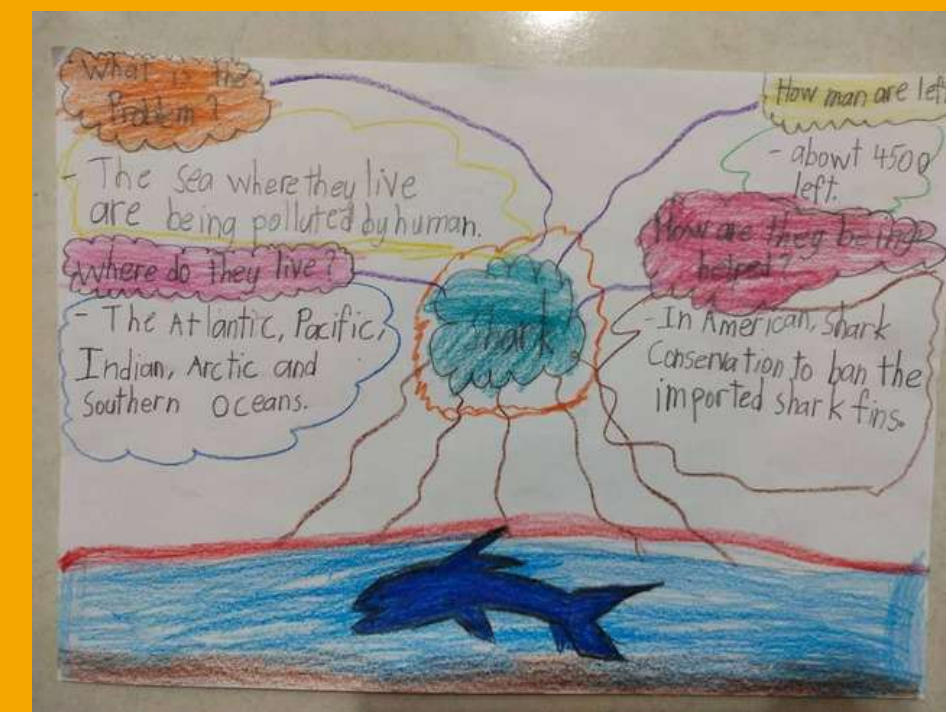 What is the
Problem?
- The sea where they live
are being polluted by human.
Where do they live?
- The Atlantic, Pacific,
Indian, Arctic and
Southern Oceans.
Shark
How man are left
- about 4500
left.
How are they being
helped?
- In American, Shark
Conservation to ban the
imported shark fins.